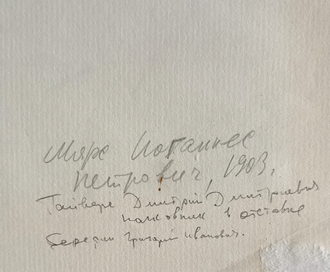 Мяре Иоганнес
Петрович, 1903,
Дмитрий Дмитриевич
полковник в отставке
Середин Григорий Иванович.